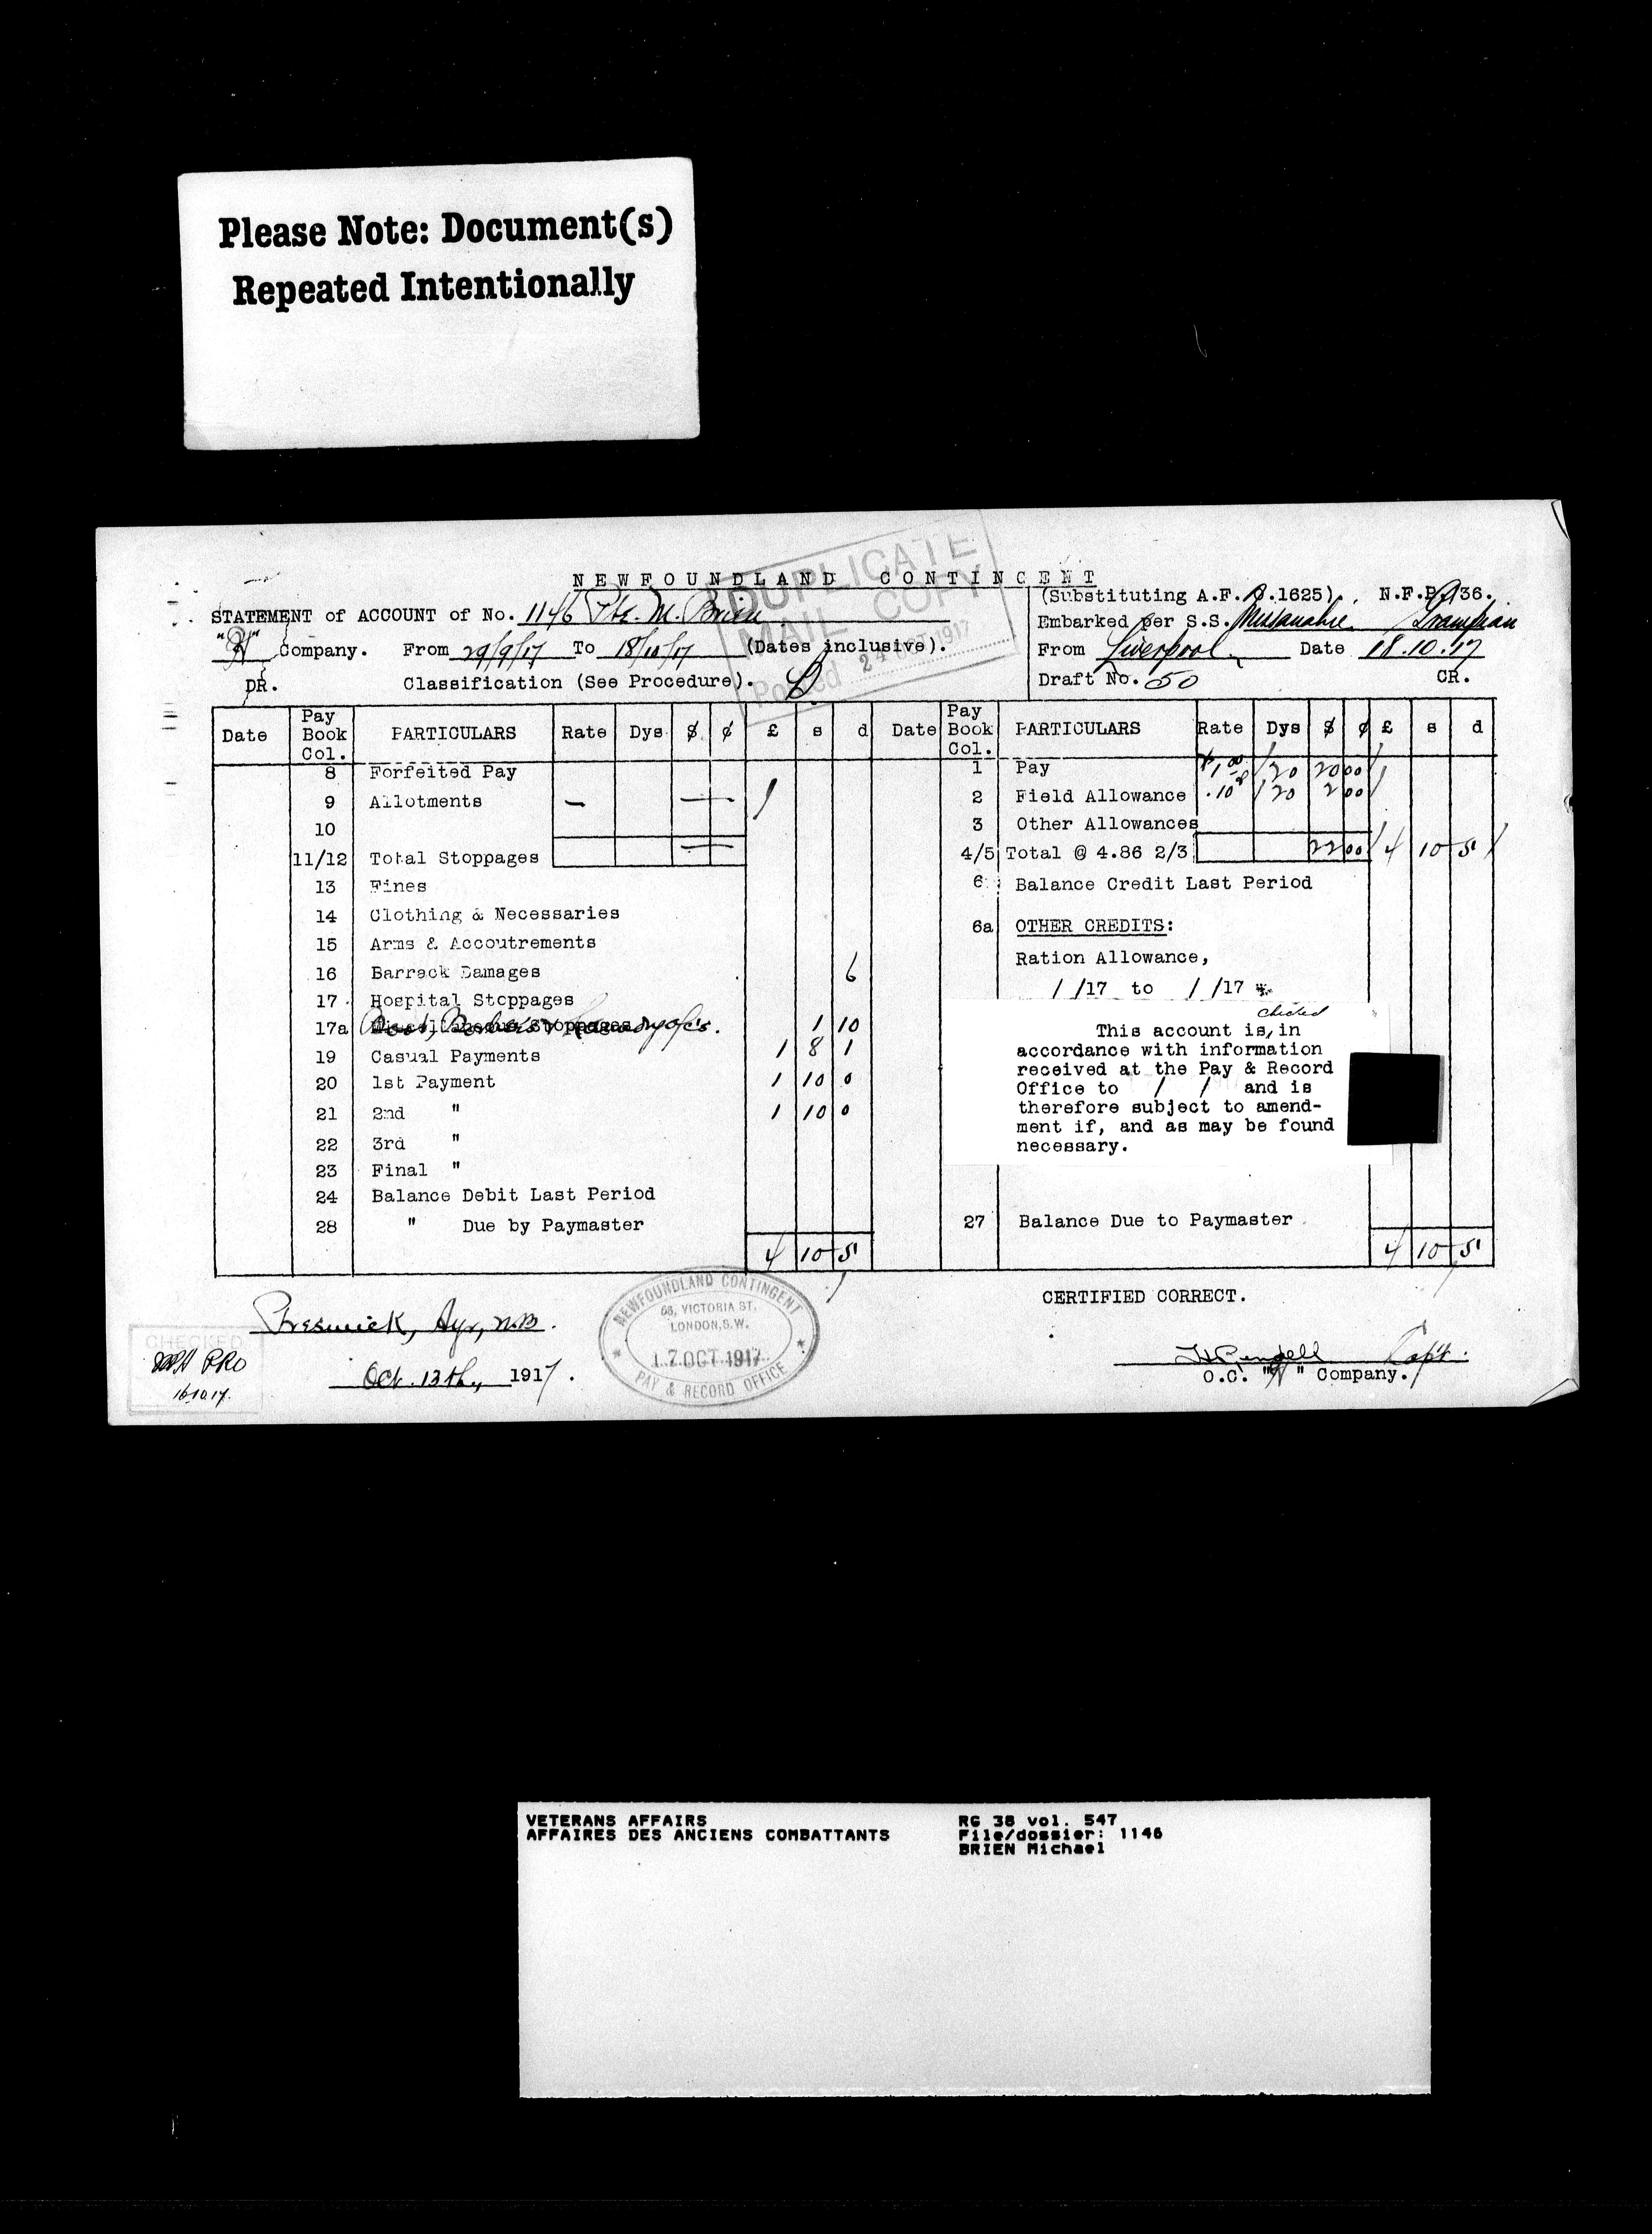 Please Note: Document(s)
Repeated Intentionally
NEWFOUNDLAND CONTINGENT
DUPLICATE
MAIL COPY
Posted 24 OCT 1917
STATEMENT of ACCOUNT of No. 1146 Pte. M. Brien
"H" Company. From 29/9/17 To 18/10/17 (Dates inclusive).
DR. Classification (See Procedure). D
(Substituting A.F. O.1625). N.F.P. 136.
Embarked per S.S. Missanabie Grampian
From Liverpool Date 18.10.17
Draft No. 50 CR.
Date Pay Book Col. PARTICULARS Rate Dys $ ¢ £ s d Date Pay Book Col. PARTICULARS Rate Dys $ ¢ £ s d
8 Forfeited Pay
9 Allotments —
10
11/12 Total Stoppages
13 Fines
14 Clothing & Necessaries
15 Arms & Accoutrements
16 Barrack Damages 6
17 Hospital Stoppages
17a Miscellaneous Stoppages 1 10
19 Casual Payments 1 8 1
20 1st Payment 1 10 0
21 2nd " 1 10 0
22 3rd "
23 Final "
24 Balance Debit Last Period
28 " Due by Paymaster
4 10 5
1 Pay $1.00 20 20 00
2 Field Allowance .10 20 2 00
3 Other Allowances
4/5 Total @ 4.86 2/3 22 00 4 10 5
6 Balance Credit Last Period
6a OTHER CREDITS:
Ration Allowance,
/ /17 to / /17
checked
This account is, in
accordance with information
received at the Pay & Record
Office to / / and is
therefore subject to amend-
ment if, and as may be found
necessary.
27 Balance Due to Paymaster
4 10 5
Prestwick, Ayr, N.B.
Oct. 13th, 1917.
CHECKED
PRO
16.10.17.
NEWFOUNDLAND CONTINGENT
58, VICTORIA ST.
LONDON, S.W.
17 OCT 1917
PAY & RECORD OFFICE
CERTIFIED CORRECT.
Capt.
O.C. "H" Company.
VETERANS AFFAIRS
AFFAIRES DES ANCIENS COMBATTANTS
RG 38 vol. 547
File/dossier: 1146
BRIEN Michael